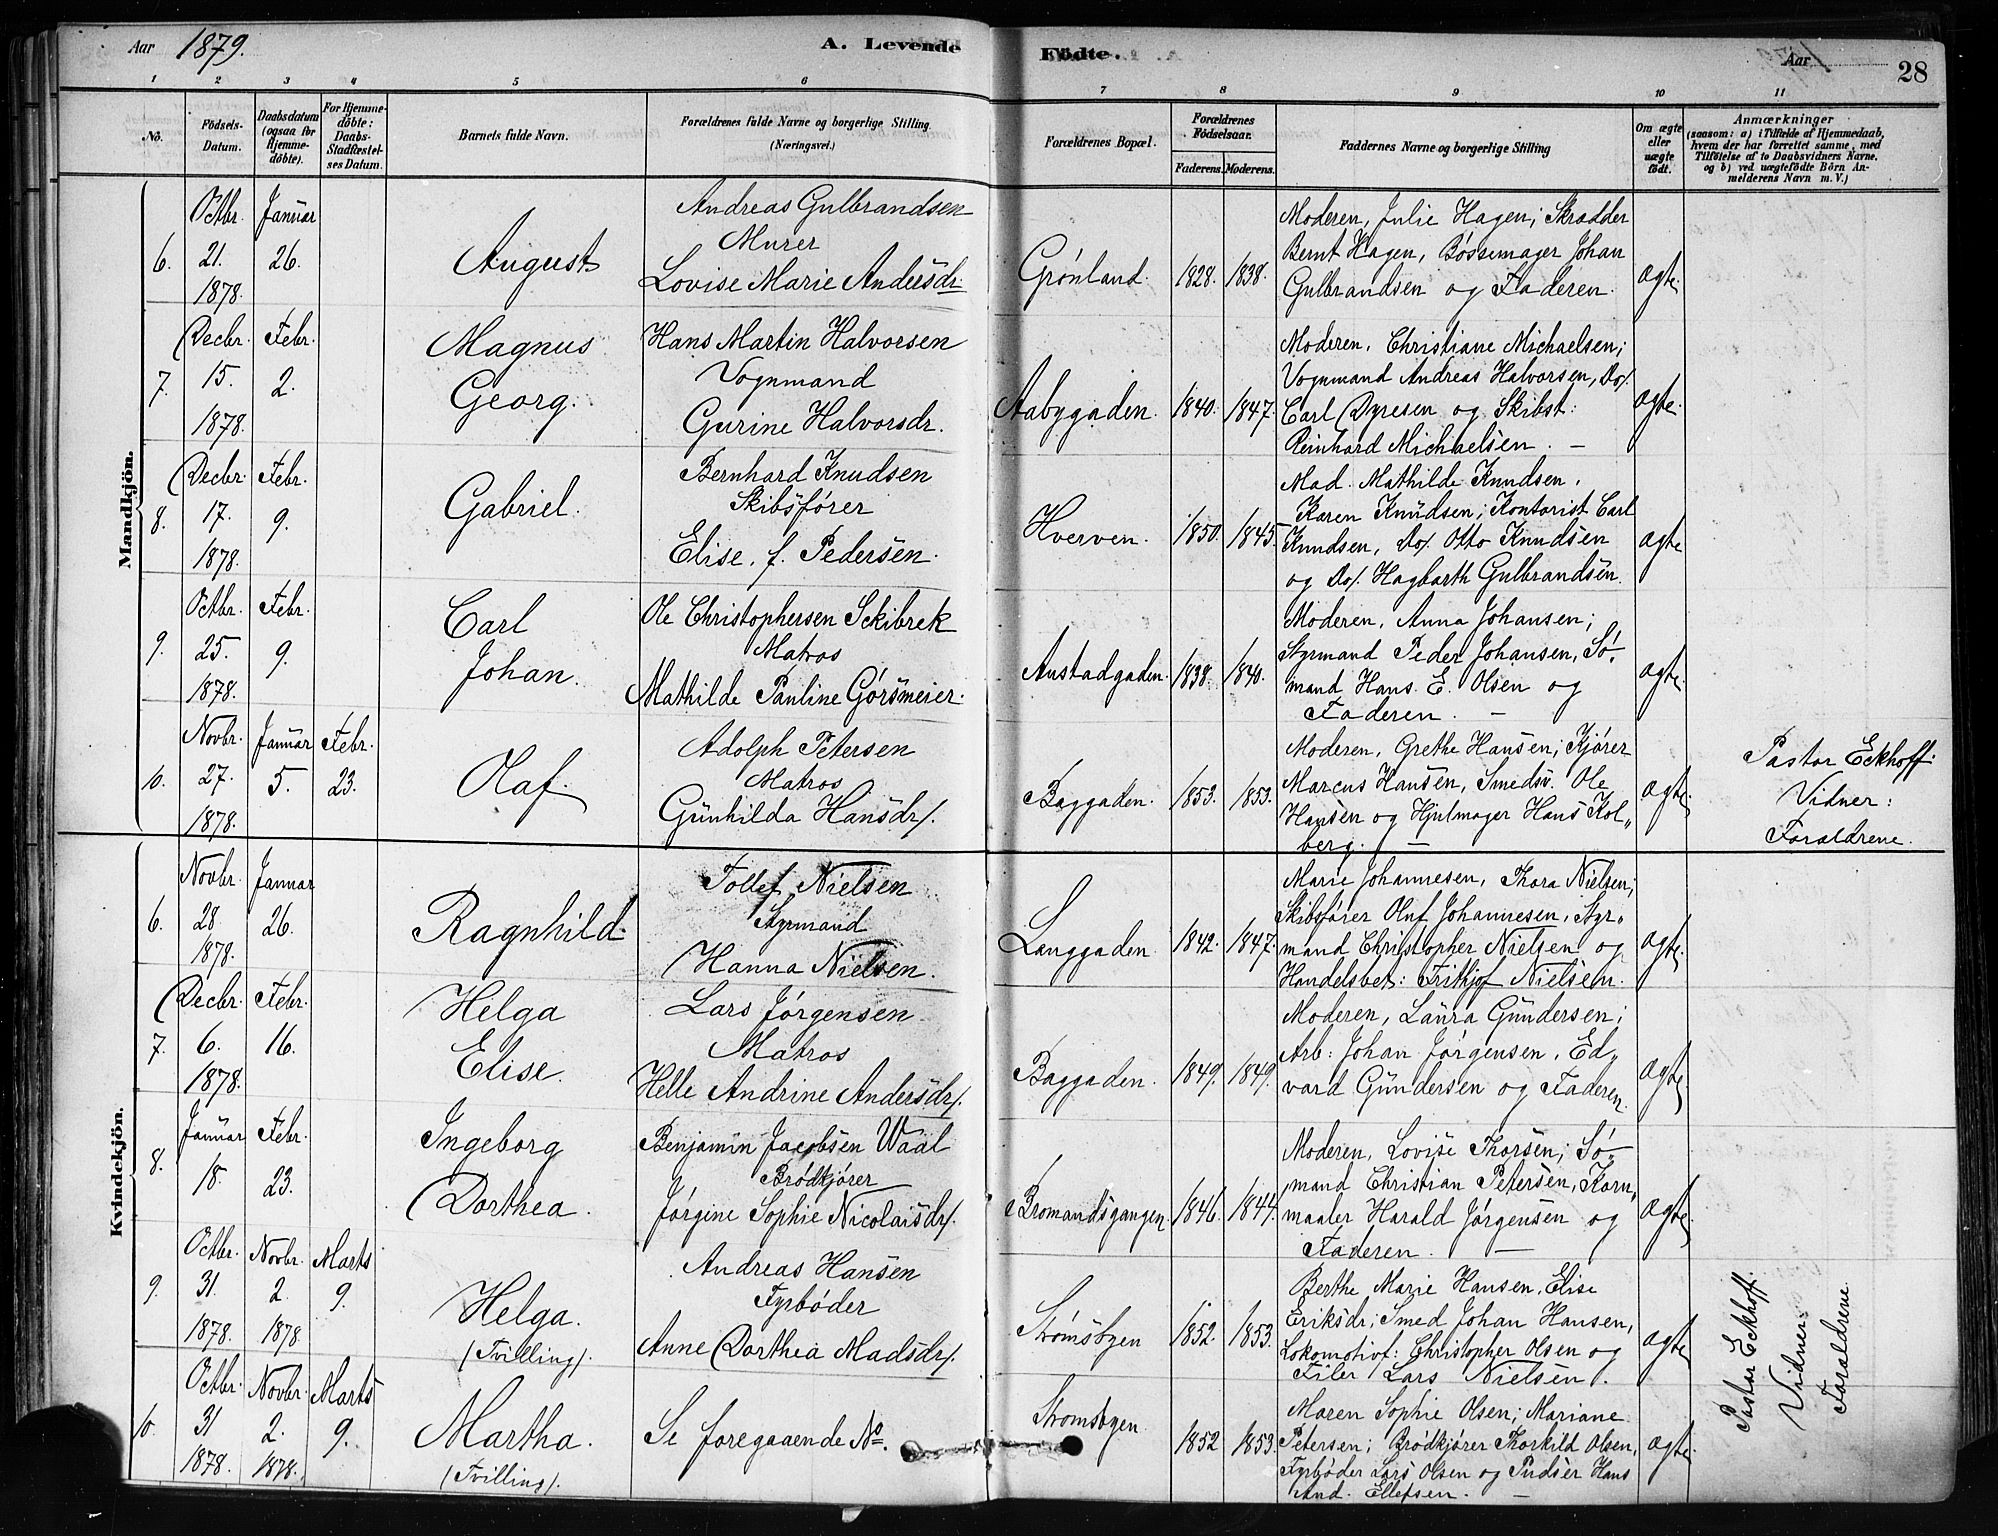 Aar 1879. A. Levende Födte. Aar 28
1 2 3 4 5 6 7 8 9 10 11
No. Födsels-Datum. Daabsdatum (ogsaa for Hjemme-döbte). For Hjemme-döbte: Daabs-Stadfæstel-ses Datum. Barnets fulde Navn. Forældrenes fulde Navne og borgerlige Stilling (Næringsvei.) Forældrenes Bopæl. Forældrenes Födselsaar. Faderens. Moderens. Faddernes Navne og borgerlige Stilling Om ægte eller uægte født. Anmærkninger
(saasom: a) i Tilfælde af Hjemmedaab,
hvem der har forrettet samme, med
Tilföielse af to Daabsvidners Navne.
og b) ved uægtefödte Börn An-
melderens Navn m. V.)
Mandkjön.
6. Octbr. 21. 1878. Januar 26. August
Andreas Gulbrandsen
Murer
Lovise Marie Andersdr
Grønland. 1828. 1838.
Moderen, Julie Hagen; Skrædder
Bernt Hagen, Bøssemager Johan
Gulbrandsen og Faderen.
ægte.
7. Decbr. 15. 1878. Febr. 2. Magnus
Georg.
Hans Martin Halvorsen
Vognmand
Gurine Halvorsdr.
Aabygaden. 1840. 1847.
Moderen, Christiane Michaelsen;
Vognmand Andreas Halvorsen, Do/.
Carl Dyresen og Skibst:
Reinhard Michaelsen. —
ægte.
8. Decbr. 17. 1878. Febr. 9. Gabriel.
Bernhard Knudsen
Skibsfører
Elise, f. Pedersen.
Hverven. 1850. 1845.
Mad. Mathilde Knudsen,
Karen Knudsen; Kontorist Carl
Knudsen, Do/. Otto Knudsen
og Do/. Hagbarth Gulbrandsen.
ægte
9. Octbr. 25. 1878. Febr. 9. Carl
Johan.
Ole Christophersen Skibrek
Matros
Mathilde Pauline Görsmeier.
Anstadgaden. 1838. 1840.
Moderen, Anna Johansen;
Styrmand Peder Johansen, Sø-
mand Hans E. Olsen og
Faderen. —
ægte.
10. Novbr. 27. 1878. Januar 5. Febr. 23. Olaf.
Adolph Petersen
Matros
Gunhilda Hansdr/.
Baggaden. 1853. 1853.
Moderen, Grethe Hansen; Kjører
Marcus Hansen, Smedsv. Ole
Hansen og Hjulmager Hans Kol-
berg. —
ægte.
Pastor Eckhoff.
Vidner:
Forældrene.
Kvindekjön.
6. Novbr. 28. 1878. Januar 26. Ragnhild.
Tollef Nielsen
Styrmand
Hanna Nielsen.
Langgaden. 1842. 1847.
Marie Johannesen, Thora Nielsen;
Skibsfører Oluf Johannesen, Styr-
mand Christopher Nielsen og
Handelsbet: Frithjof Nielsen.
ægte.
7. Decbr. 6. 1878. Febr. 16. Helga
Elise.
Lars Jørgensen
Matros
Helle Andrine Andersdr/.
Baggaden. 1849. 1849.
Moderen, Laura Gundersen;
Arb: Johan Jørgensen, Ed-
vard Gundersen og Faderen.
ægte
8. Januar 18. Febr. 23. Ingeborg
Dorthea.
Benjamin Jacobsen Waal
Brødkjører
Jørgine Sophie Nicolaisdr/.
Bromandsgangen 1846. 1844.
Moderen, Lovise Thorsen; Sø-
mand Christian Petersen, Korn-
maaler Harald Jørgensen og
Faderen. —
ægte.
9. Octbr. 31. 1878. Novbr. 2. 1878 Marts 9. Helga.
(Tvilling).
Andreas Hansen
Fyrbøder
Anne Dorthea Madsdr/.
Strømsbyen 1852. 1853.
Berthe Marie Hansen, Elise
Eriksdr; Smed Johan Hansen,
Lokomotivf: Christopher Olsen og
Filer Lars Nielsen.
ægte
10. Octbr. 31 1878. Novbr. 2. 1878. Marts 9. Martha.
(Tvilling).
Se foregaaende No.
Strømsbyen 1852 1853.
Maren Sophie Olsen; Mariane
Petersen; Brødkjører Thorkild Olsen,
Fyrbøder Lars Olsen og Pudser Hans
And. Ellefsen. —
ægte.
Pastor Eckhoff.
Vidner:
Forældrene